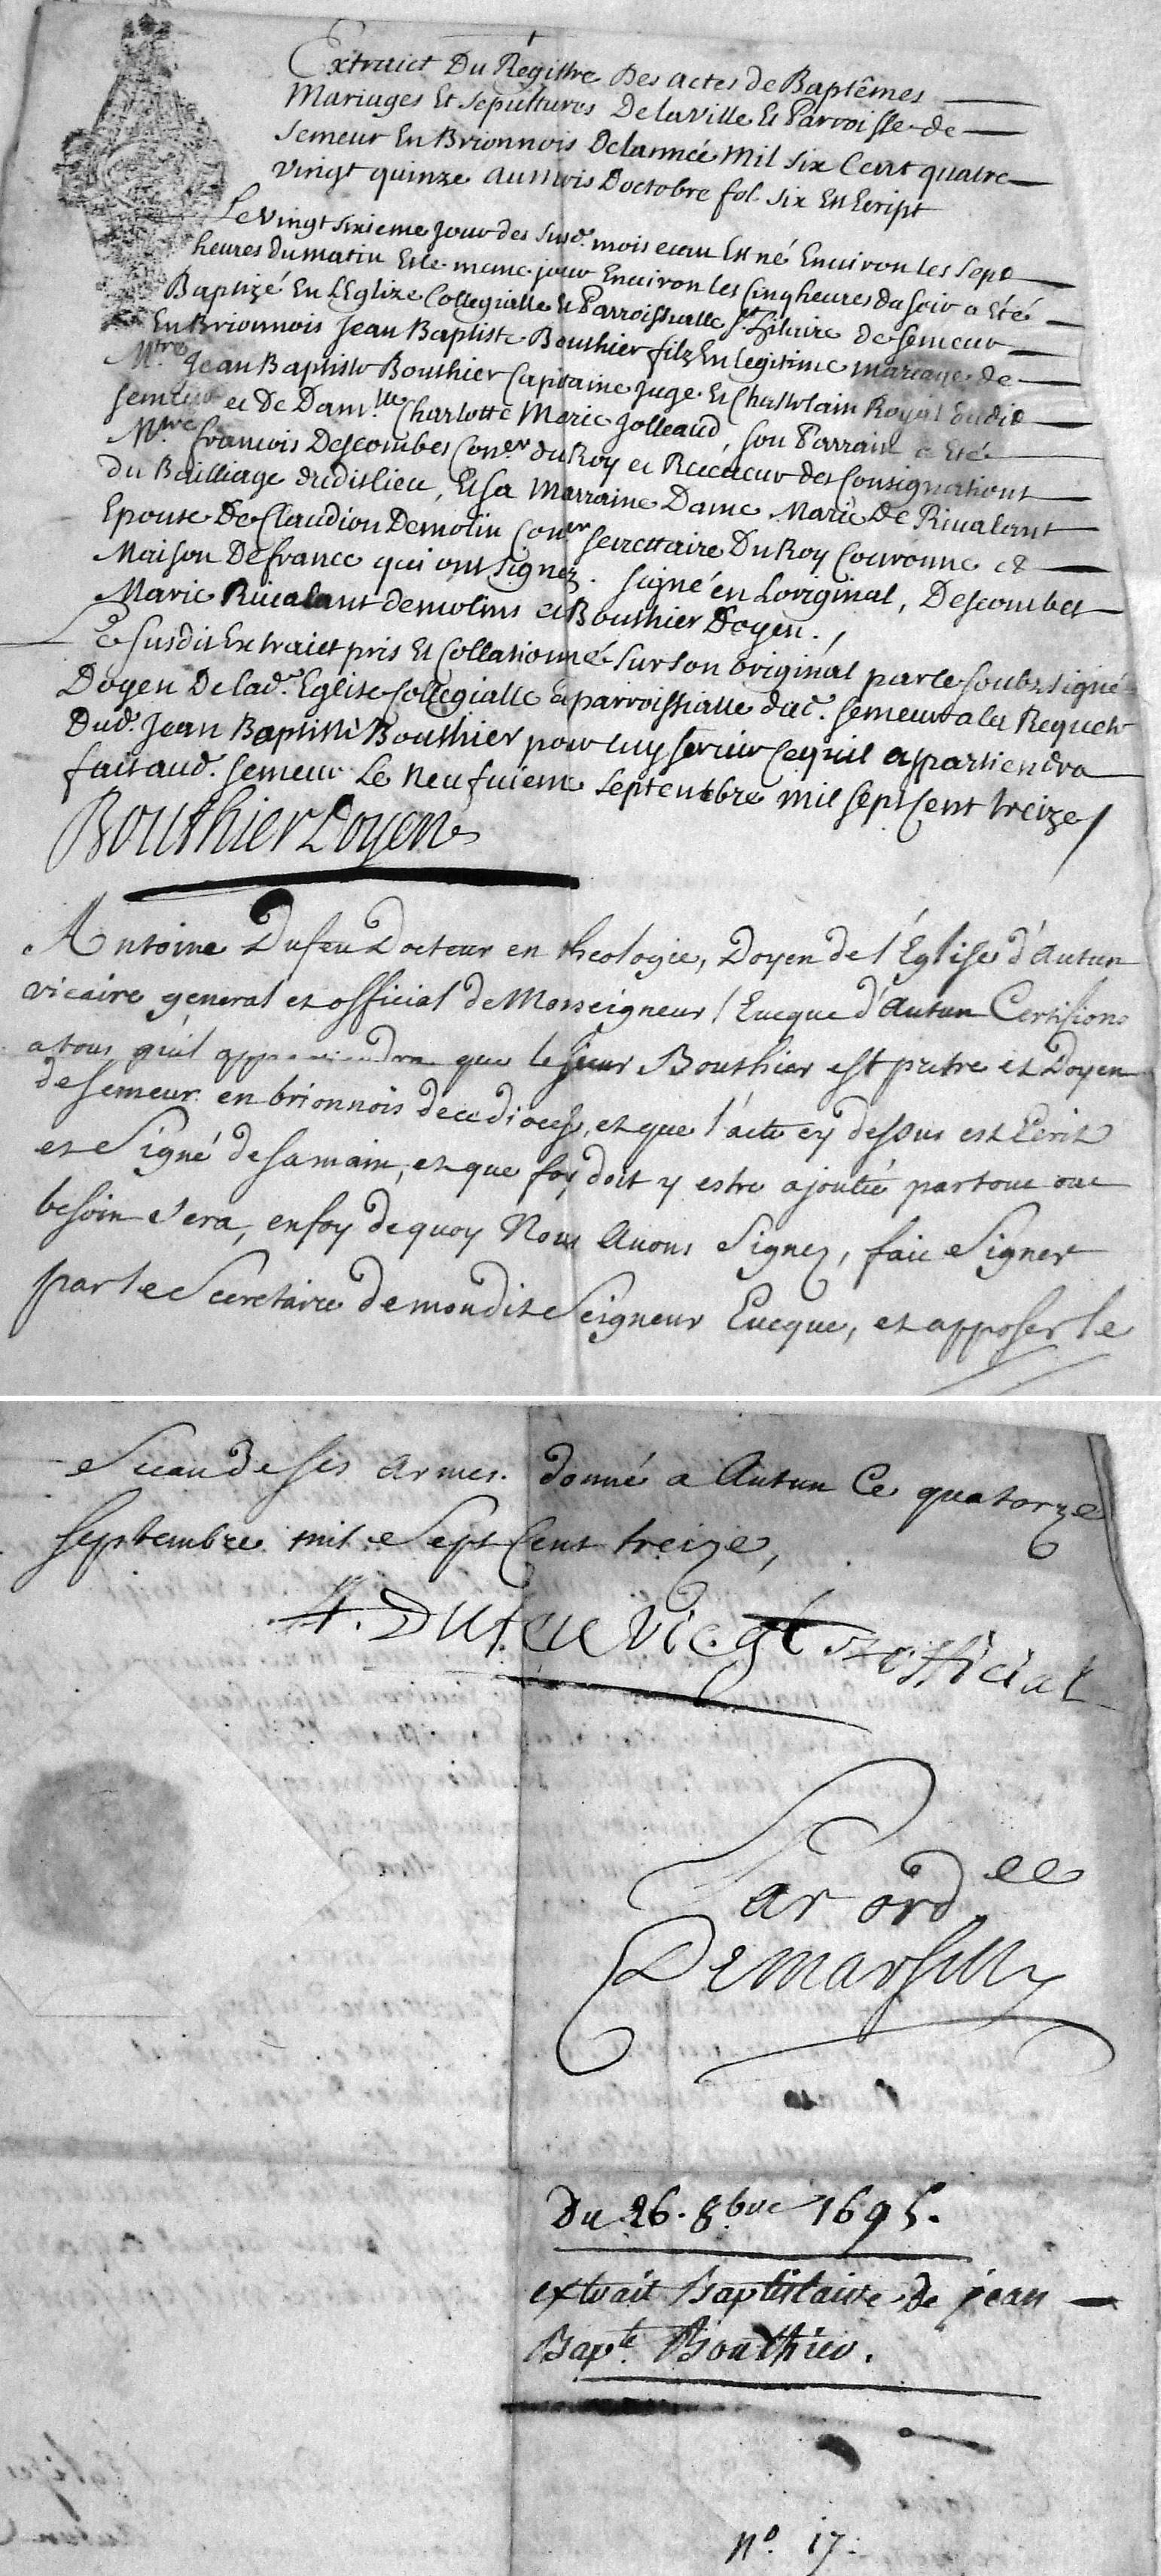 Extraict Du Régistre Des actes de Baptêmes
Mariages Et sepultures De la ville Et Parroisse de
Semeur En Brionnois De lannée Mil Six Cent quatre
vingt quinze au mois Doctobre fol. Six Est Ecript
Le vingt sixieme jour des susd. mois et an Est né Environ les sept
heures du matin Et le meme jour Environ les Cinq heures du soir a Eté
Baptizé En L'Eglize Collegialle Et Parroissialle St. Hilaire de Semeur
En Brionnois Jean Baptiste Bouthier filz En legitime mariage de
Mtre. Jean Baptiste Bouthier Capitaine Juge Et Chastelain Royal dudit
Semeur et De Damlle. Charlotte Marie Jolleaud, son Parrain a Eté
Mtre francois Descombes Coner du Roy et Receveur des Consignations
du Bailliage dudit lieu, Et sa Marraine Dame Marie De Rivalant
Epouse De Claudion Demolin Coner Secrettaire Du Roy Couronne et
Maison De france qui ont signez. signé en Loriginal, Descombes
Marie Rivalant demolins et Bouthier Doyen.
Le susdit Extraict pris Et Collationné sur son original par le soubzsigné
Doyen De lad. Eglise Collegialle et parroissialle dud. Semeur a la Requete
Dud. Jean Baptiste Bouthier pour luy servir Ce qu'il appartiendra
fait aud. Semeur Le neufuieme Septembre mil sept Cent treize
Bouthier Doyen
Antoine Dufeu Docteur en theologie, Doyen de l'Église d'Autun
vicaire general et official de Monseigneur l'Eueque d'Autun Certifions
a tous qu'il appartiendra que le sieur Bouthier est pretre et Doyen
de semeur en brionnois de ce diocese, et que l'acte cy dessus est Ecrit
et Signé de sa main, et que foy doit y estre ajoutée partout ou
besoin sera, en foy de quoy Nous Auons Signez, fait Signer
par le Secretaire de mondit Seigneur Eueque, et apposer le
Sceau de ses armes. donné a Autun Ce quatorze
septembre mil Sept Cent treize,
A. Dufeu vic. gl. et official
Par ord.ce
Demarsilly
Du 26. 8bre 1695.
extrait Baptistaire de jean
Bapte. Bouthier.
no. 17.